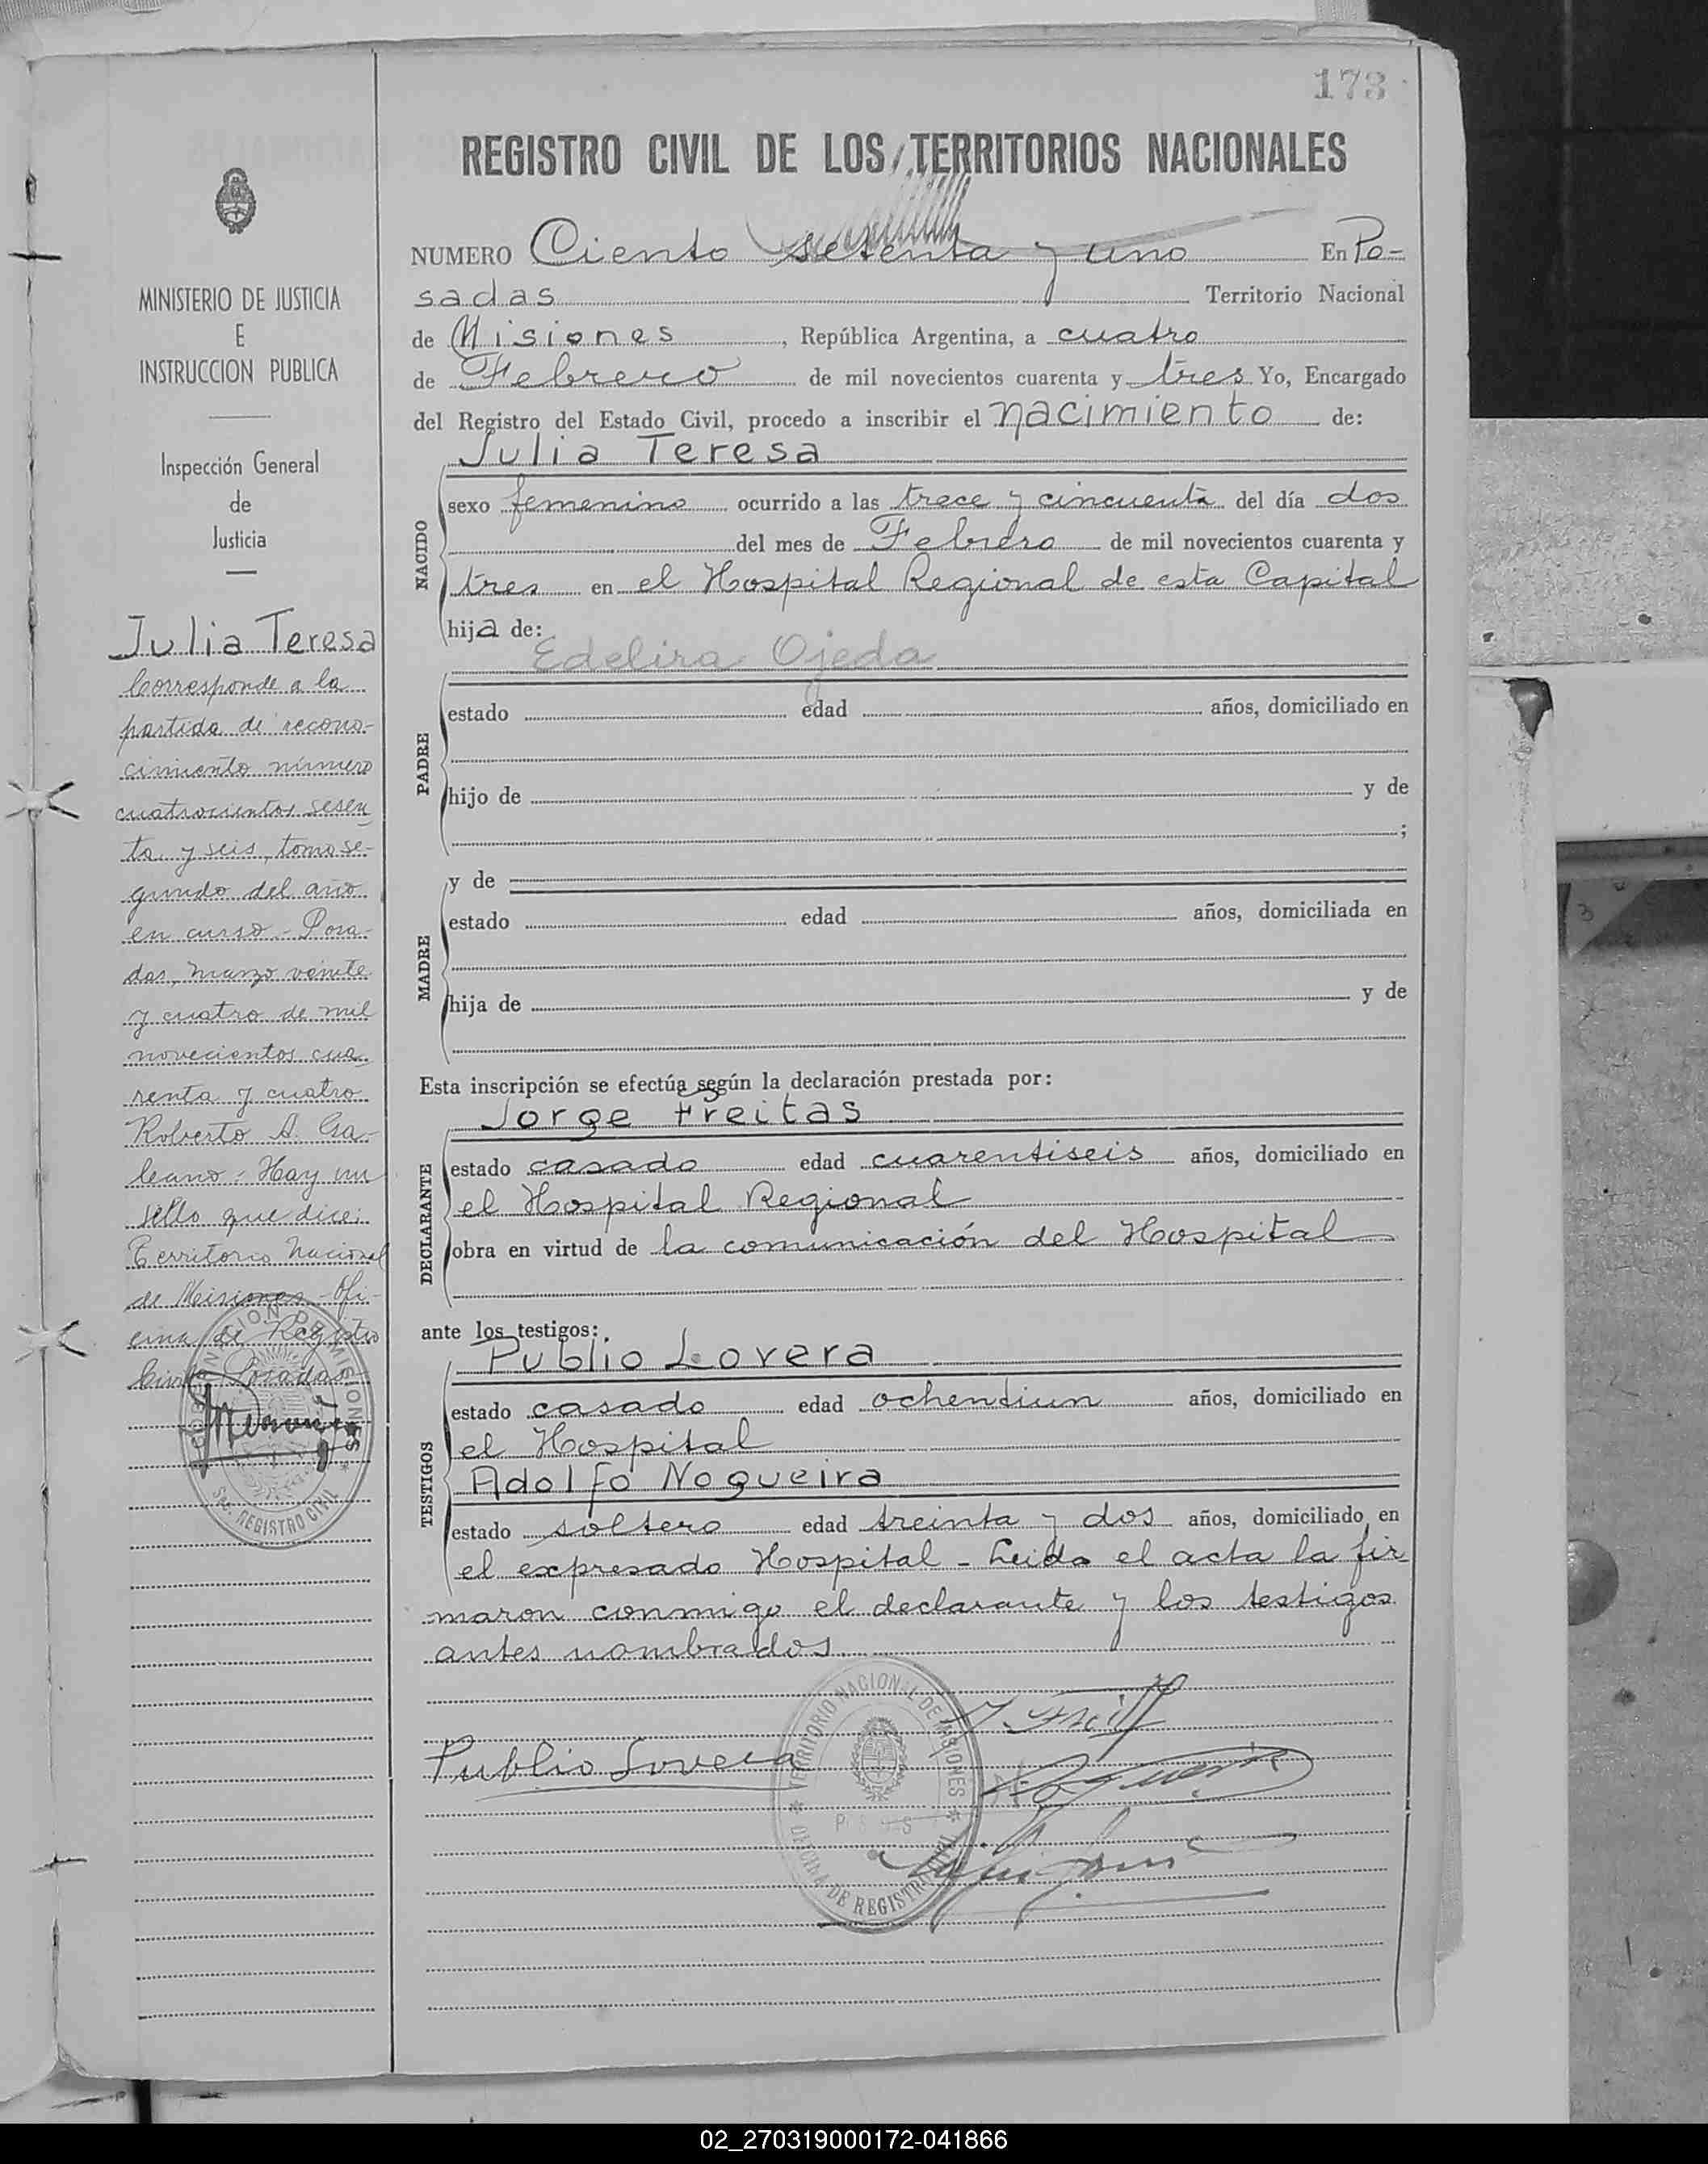 173
REGISTRO CIVIL DE LOS TERRITORIOS NACIONALES
NUMERO Ciento setenta y uno En Po-
sadas Territorio Nacional
de Misiones, República Argentina, a cuatro
de Febrero de mil novecientos cuarenta y tres Yo, Encargado
del Registro del Estado Civil, procedo a inscribir el nacimiento de:
Julia Teresa
NACIDO
sexo femenino ocurrido a las trece y cincuenta del día dos
del mes de Febrero de mil novecientos cuarenta y
tres en el Hospital Regional de esta Capital
hija de:
Edelira Ojeda
PADRE
estado edad años, domiciliado en
hijo de y de
;
MADRE
y de
estado edad años, domiciliada en
hija de y de
Esta inscripción se efectúa según la declaración prestada por:
Jorge Freitas
DECLARANTE
estado casado edad cuarentiseis años, domiciliado en
el Hospital Regional
obra en virtud de la comunicación del Hospital
ante los testigos:
Publio Lovera
TESTIGOS
estado casado edad ochentiun años, domiciliado en
el Hospital
Adolfo Nogueira
estado soltero edad treinta y dos años, domiciliado en
el expresado Hospital - Leida el acta la fir
maron conmigo el declarante y los testigos
antes nombrados
Publio Lovera
TERRITORIO NACIONAL DE MISIONES
OFICINA DE REGISTRO CIVIL
MINISTERIO DE JUSTICIA
E
INSTRUCCION PUBLICA
Inspección General
de
Justicia
Julia Teresa
Corresponde a la
partida de recono-
cimiento número
cuatrocientos sesen
ta y seis, tomo se-
gundo del año
en curso - Posa-
das, marzo veinte
y cuatro de mil
novecientos cua
renta y cuatro
Roberto A. Ga-
leano - Hay un
sello que dice:
Territorio Nacional
de Misiones - Ofi-
cina de Registro
Civil Posadas
GOBERNACION DE MISIONES
REGISTRO CIVIL
02_270319000172-041866